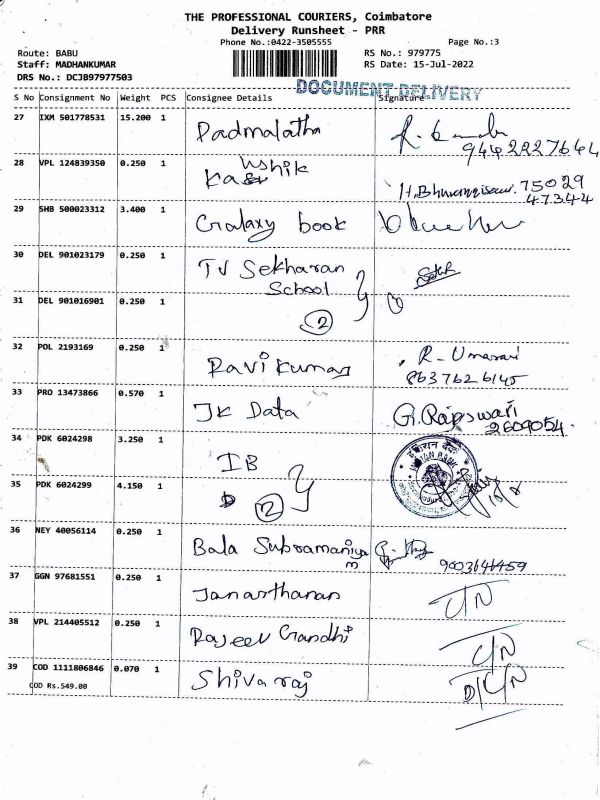 THE PROFESSIONAL COURIERS, Coimbatore
Delivery Runsheet - PRR
Phone No.:0422-3505555 Page No.:3
Route: BABU RS No.: 979775
Staff: MADHANKUMAR RS Date: 15-Jul-2022
DRS No.: DCJB97977503
DOCUMENT DELIVERY
S No Consignment No Weight PCS Consignee Details Signature
27 IXM 501778531 15.200 1 Padmalatha
9442227644
28 VPL 124839350 0.250 1 Kaushik
75029
47344
29 SHB 500023312 3.400 1 Galaxy book
30 DEL 901023179 0.250 1 TV Sekharan
School
31 DEL 901016901 0.250 1
2
32 POL 2193169 0.250 1 Ravi kumar R- Umarani
8637626145
33 PRO 13473866 0.570 1 JK Data G. Rajeswari
2609054
34 PDK 6024298 3.250 1 IB
INDIAN BANK
35 PDK 6024299 4.150 1
2
36 NEY 40056114 0.250 1 Bala Subramaniya
m 9003646459
37 GGN 97681551 0.250 1 Janarthanan
38 VPL 214405512 0.250 1 Rajeev Gandhi
39 COD 1111806846 0.070 1 Shivaraj
COD Rs.549.00